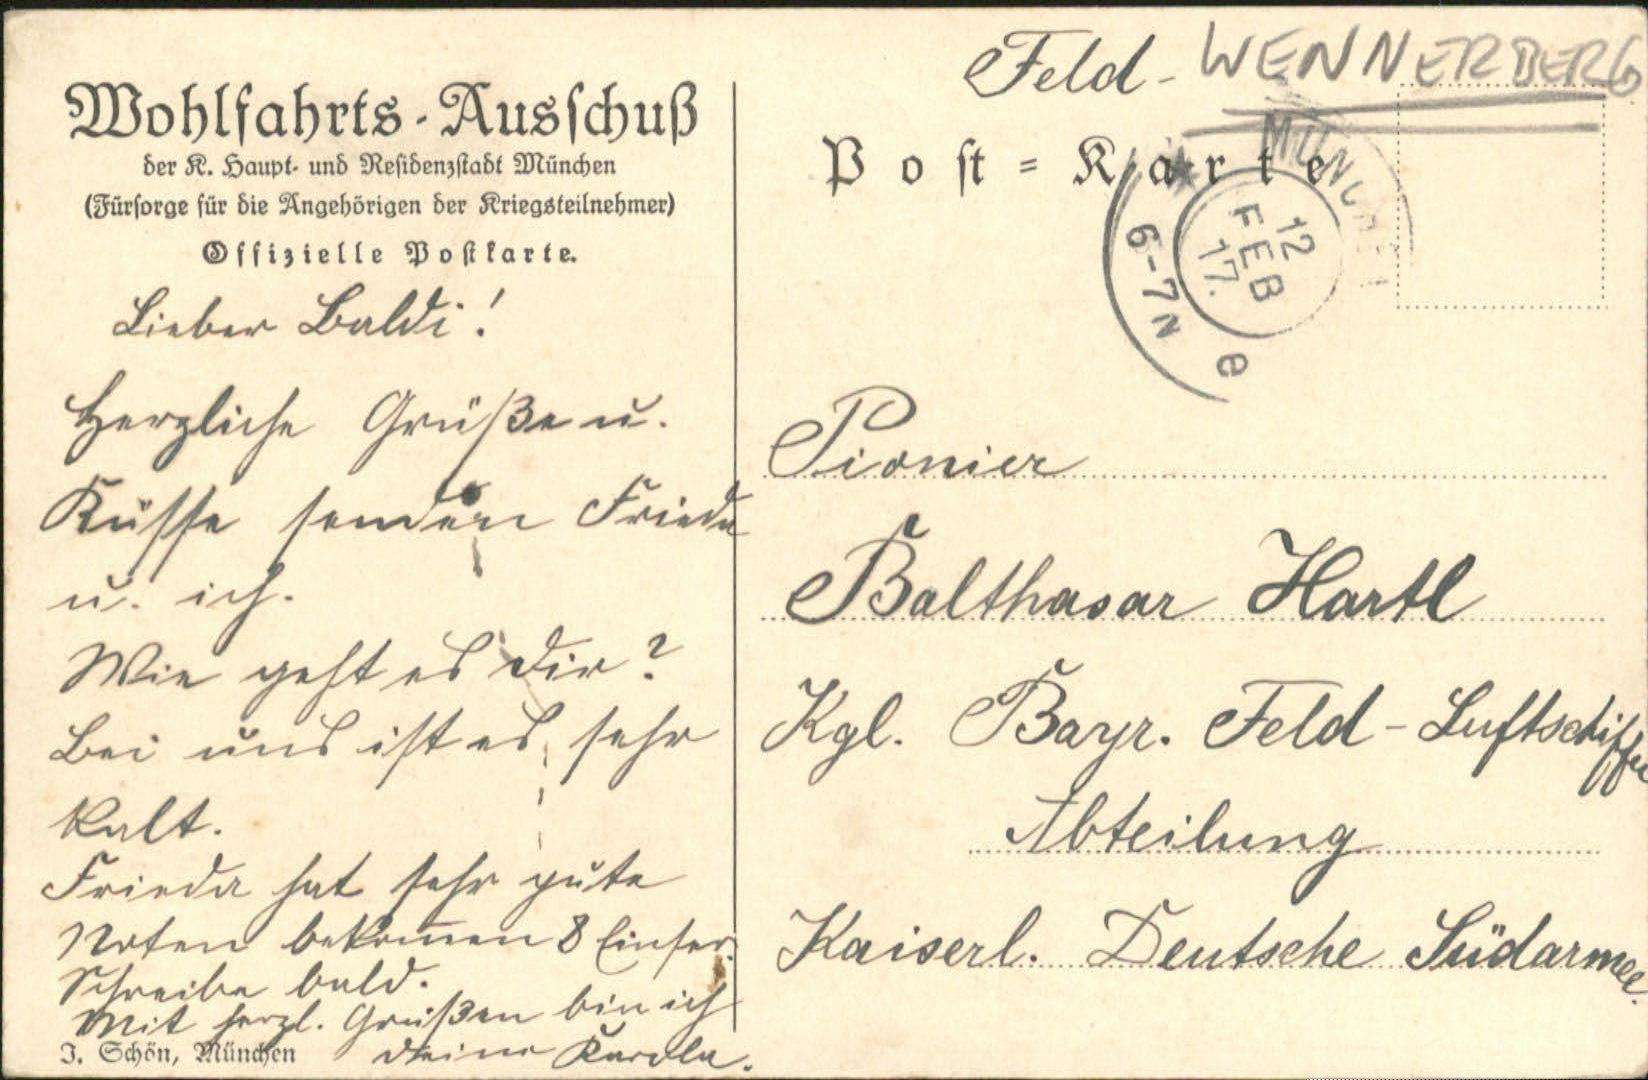 Wohlfahrts-Ausschuß
der K. Haupt- und Residenzstadt München
(Fürsorge für die Angehörigen der Kriegsteilnehmer)
Offizielle Postkarte.
Lieber Baldi!
Herzliche Grüße u.
Küsse senden Frieda
u. ich.
Wie geht es Dir?
Bei uns ist es sehr
kalt.
Frieda hat sehr gute
Noten bekommen 8 Einser.
Schreibe bald.
Mit herzl. Grüßen bin ich
Deine Karola.
J. Schön, München
Feld-
WENNERBERG
Post-Karte
MÜNCHEN
12
FEB
17.
6-7N
e
Pionier
Balthasar Hartl
Kgl. Bayr. Feld-Luftschiffer
Abteilung
Kaiserl. Deutsche Südarmee.